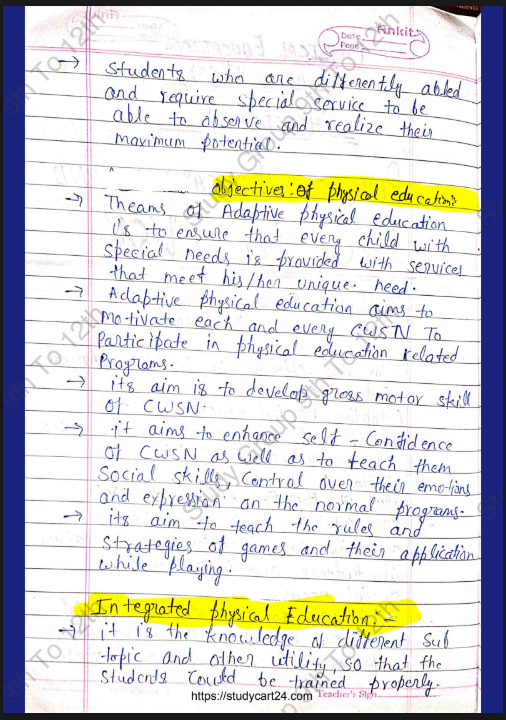 Ankit
Date
Page
→ Students who are differently abled
and require special service to be
able to observe and realize their
maximum potential.
objectives: of physical education:
→ Theams of Adaptive physical education
is to ensure that every child with
special needs is provided with services
that meet his/her unique. need.
→ Adaptive physical education aims to
motivate each and every CWSN To
Participate in physical education related
Programs.
→ its aim is to develop gross motor skill
of CWSN.
→ it aims to enhance self - Confidence
of CWSN as well as to teach them
Social skills, Control over their emotions
and expression on the normal programs.
→ its aim to teach the rules and
strategies of games and their application
while playing.
Integrated physical Education:-
→ it is the knowledge of different sub
topic and other utility so that the
students could be trained properly.
https://studycart24.com Teacher's Sign
Study Group 9th To 12th